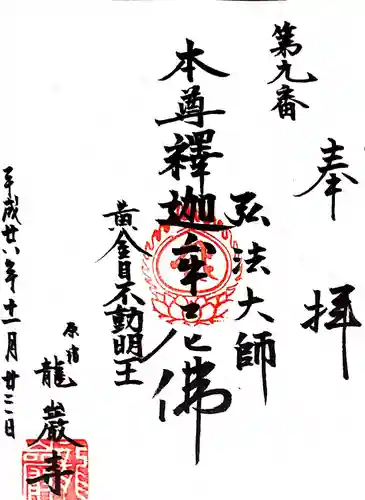 奉拝
第九番
弘法大師
本尊釋迦牟尼仏
黄金目不動明王
原宿
龍巌寺
平成廿六年十一月廿二日